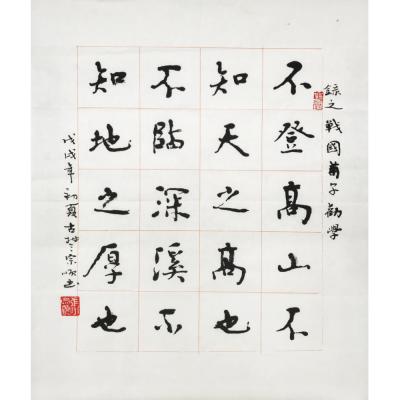 錄之戰國荀子勸學
不登高山不
知天之高也
不臨深溪不
知地之厚也
戊戌年初夏古楚宗